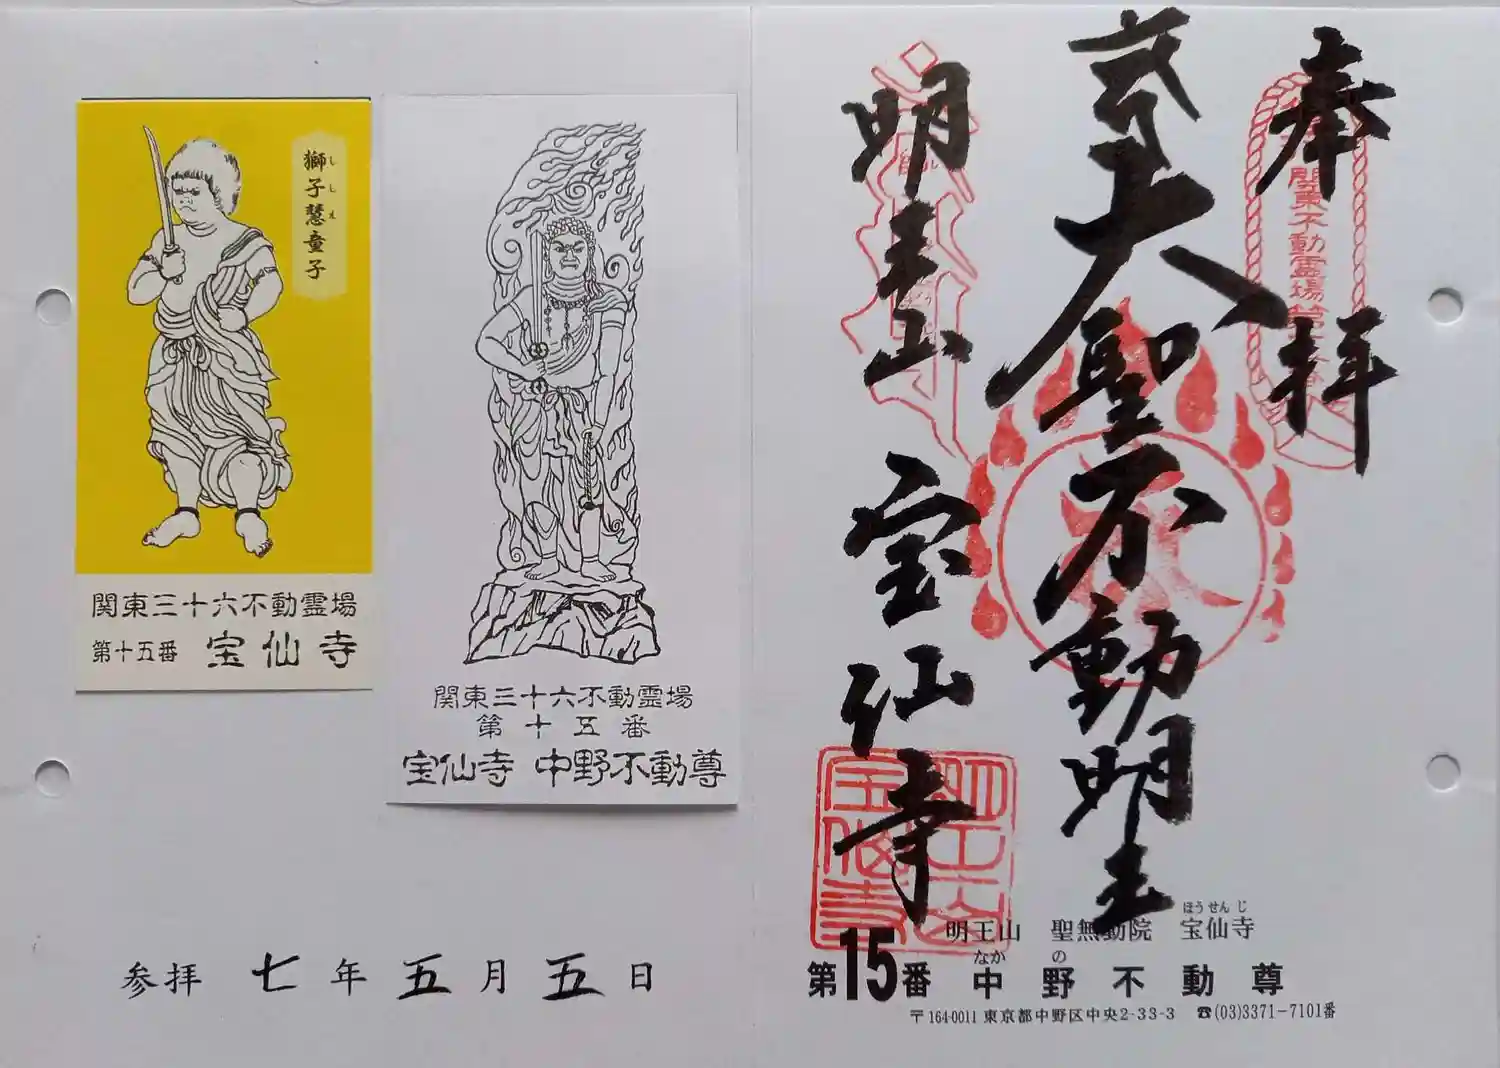 獅子慧童子
しし え
関東三十六不動霊場
第十五番 宝仙寺
関東三十六不動霊場
第十五番
宝仙寺 中野不動尊
参拝 七年 五月 五日
奉拝
関東不動霊場第
大聖不動明王
明王山 宝仙寺
明王山
宝仙寺
ほうせんじ
明王山 聖無動院 宝仙寺
なか の
第15番 中野不動尊
〒164-0011 東京都中野区中央2-33-3 ☎(03)3371-7101番